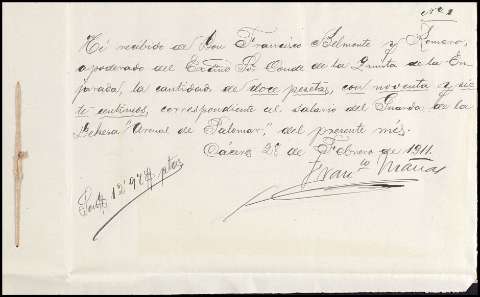 Nº 2
He recibido de Don Francisco Belmonte y Romero,
apoderado del Excmo Sr. Conde de la Quinta de la En-
jarada, la cantidad de doce pesetas, con noventa y sie-
te centimos, correspondiente al salario del Guarda de la
Dehesa "Arenal de Palomar," del presente més.
Cáceres 28 de Febrero de 1911.
Fran.co
Son 12'97 ptas